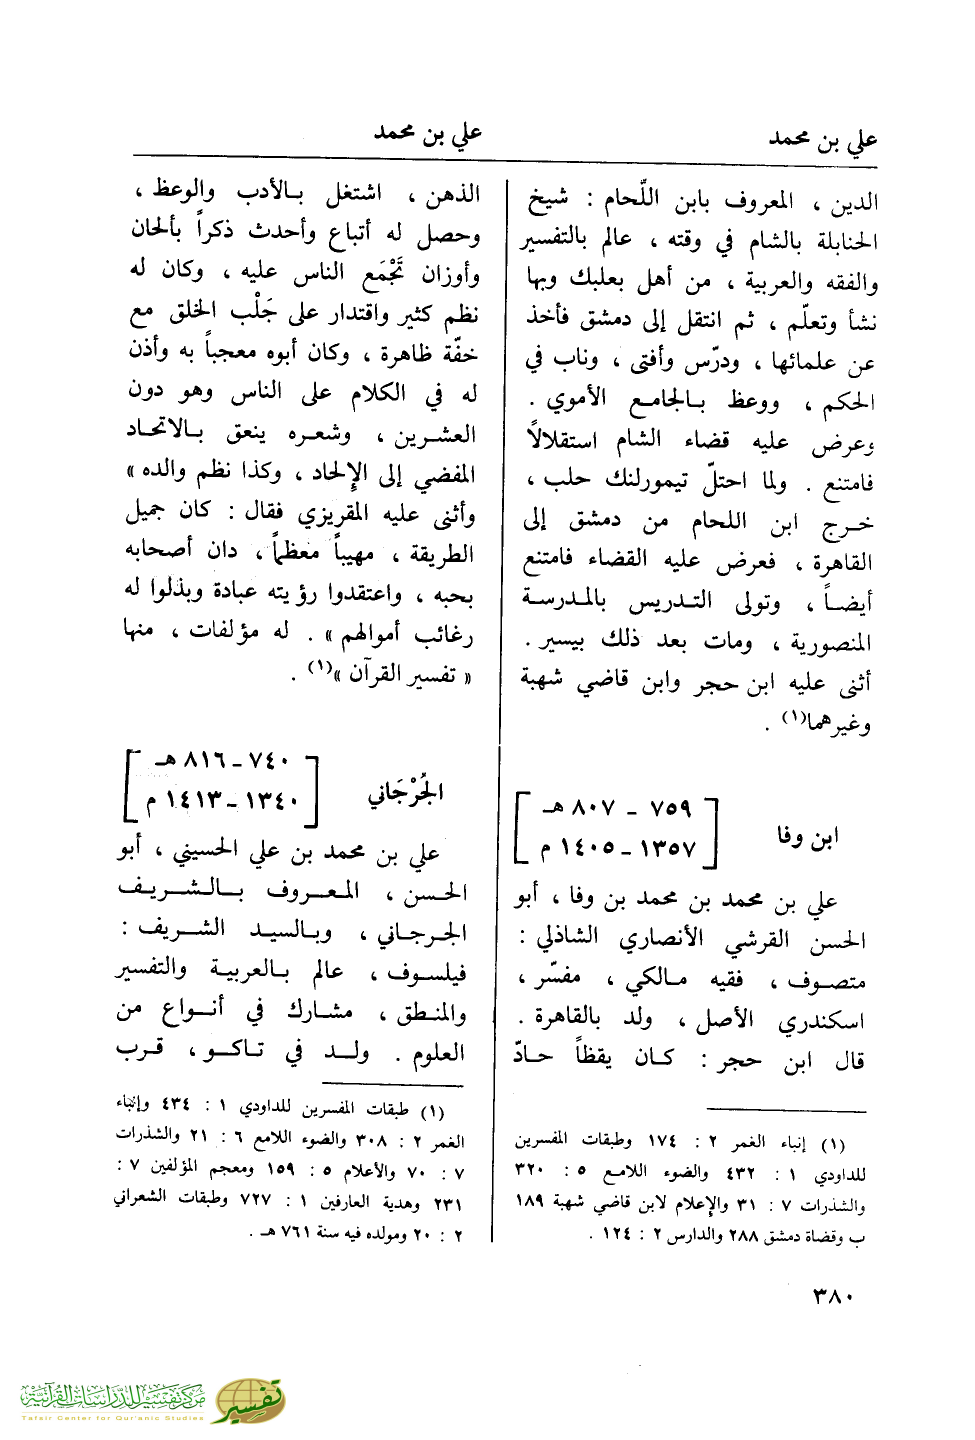 علي بن محمد
علي بن محمد
الدين ، المعروف بابن اللّحام : شيخ
الحنابلة بالشام في وقته ، عالم بالتفسير
والفقه والعربية ، من أهل بعلبك وبها
نشأ وتعلّم ، ثم انتقل إلى دمشق فأخذ
عن علمائها ، ودرّس وأفتى ، وناب في
الحكم ، ووعظ بالجامع الأموي .
وعرض عليه قضاء الشام استقلالاً
فامتنع . ولما احتلّ تيمورلنك حلب ،
خرج ابن اللحام من دمشق إلى
القاهرة ، فعرض عليه القضاء فامتنع
أيضاً ، وتولى التدريس بالمدرسة
المنصورية ، ومات بعد ذلك بيسير .
أثنى عليه ابن حجر وابن قاضي شهبة
وغيرهما(١) .
ابن وفا
[ ٧٥٩ - ٨٠٧ هـ
١٣٥٧ - ١٤٠٥ م ]
علي بن محمد بن محمد بن وفا ، أبو
الحسن القرشي الأنصاري الشاذلي :
متصوف ، فقيه مالكي ، مفسّر ،
اسكندري الأصل ، ولد بالقاهرة .
قال ابن حجر : كان يقظاً حادّ
(١) إنباء الغمر ٢ : ١٧٤ وطبقات المفسرين
للداودي ١ : ٤٣٢ والضوء اللامع ٥ : ٣٢٠
والشذرات ٧ : ٣١ والإعلام لابن قاضي شهبة ١٨٩
ب وقضاة دمشق ٢٨٨ والدارس ٢ : ١٢٤ .
الذهن ، اشتغل بالأدب والوعظ ،
وحصل له أتباع وأحدث ذكراً بألحان
وأوزان تَجْمَع الناس عليه ، وكان له
نظم كثير واقتدار على جَلْب الخلق مع
خفّة ظاهرة ، وكان أبوه معجباً به وأذن
له في الكلام على الناس وهو دون
العشرين ، وشعره ينعق بالاتحاد
المفضي إلى الإلحاد ، وكذا نظم والده »
وأثنى عليه المقريزي فقال : كان جميل
الطريقة ، مهيباً معظماً ، دان أصحابه
بحبه ، واعتقدوا رؤيته عبادة وبذلوا له
رغائب أموالهم » . له مؤلفات ، منها
« تفسير القرآن »(١) .
الجُرْجَاني
[ ٧٤٠ - ٨١٦ هـ
١٣٤٠ - ١٤١٣ م ]
علي بن محمد بن علي الحسيني ، أبو
الحسن ، المعروف بالشريف
الجرجاني ، وبالسيد الشريف :
فيلسوف ، عالم بالعربية والتفسير
والمنطق ، مشارك في أنواع من
العلوم . ولد في تاكو ، قرب
(١) طبقات المفسرين للداودي ١ : ٤٣٤ وإنباء
الغمر ٢ : ٣٠٨ والضوء اللامع ٦ : ٢١ والشذرات
٧ : ٧٠ والأعلام ٥ : ١٥٩ ومعجم المؤلفين ٧ :
٢٣١ وهدية العارفين ١ : ٧٢٧ وطبقات الشعراني
٢ : ٢٠ ومولده فيه سنة ٧٦١ هـ .
٣٨٠
مركز تفسير للدراسات القرآنية
Tafsir Center for Qur'anic Studies
تفسير